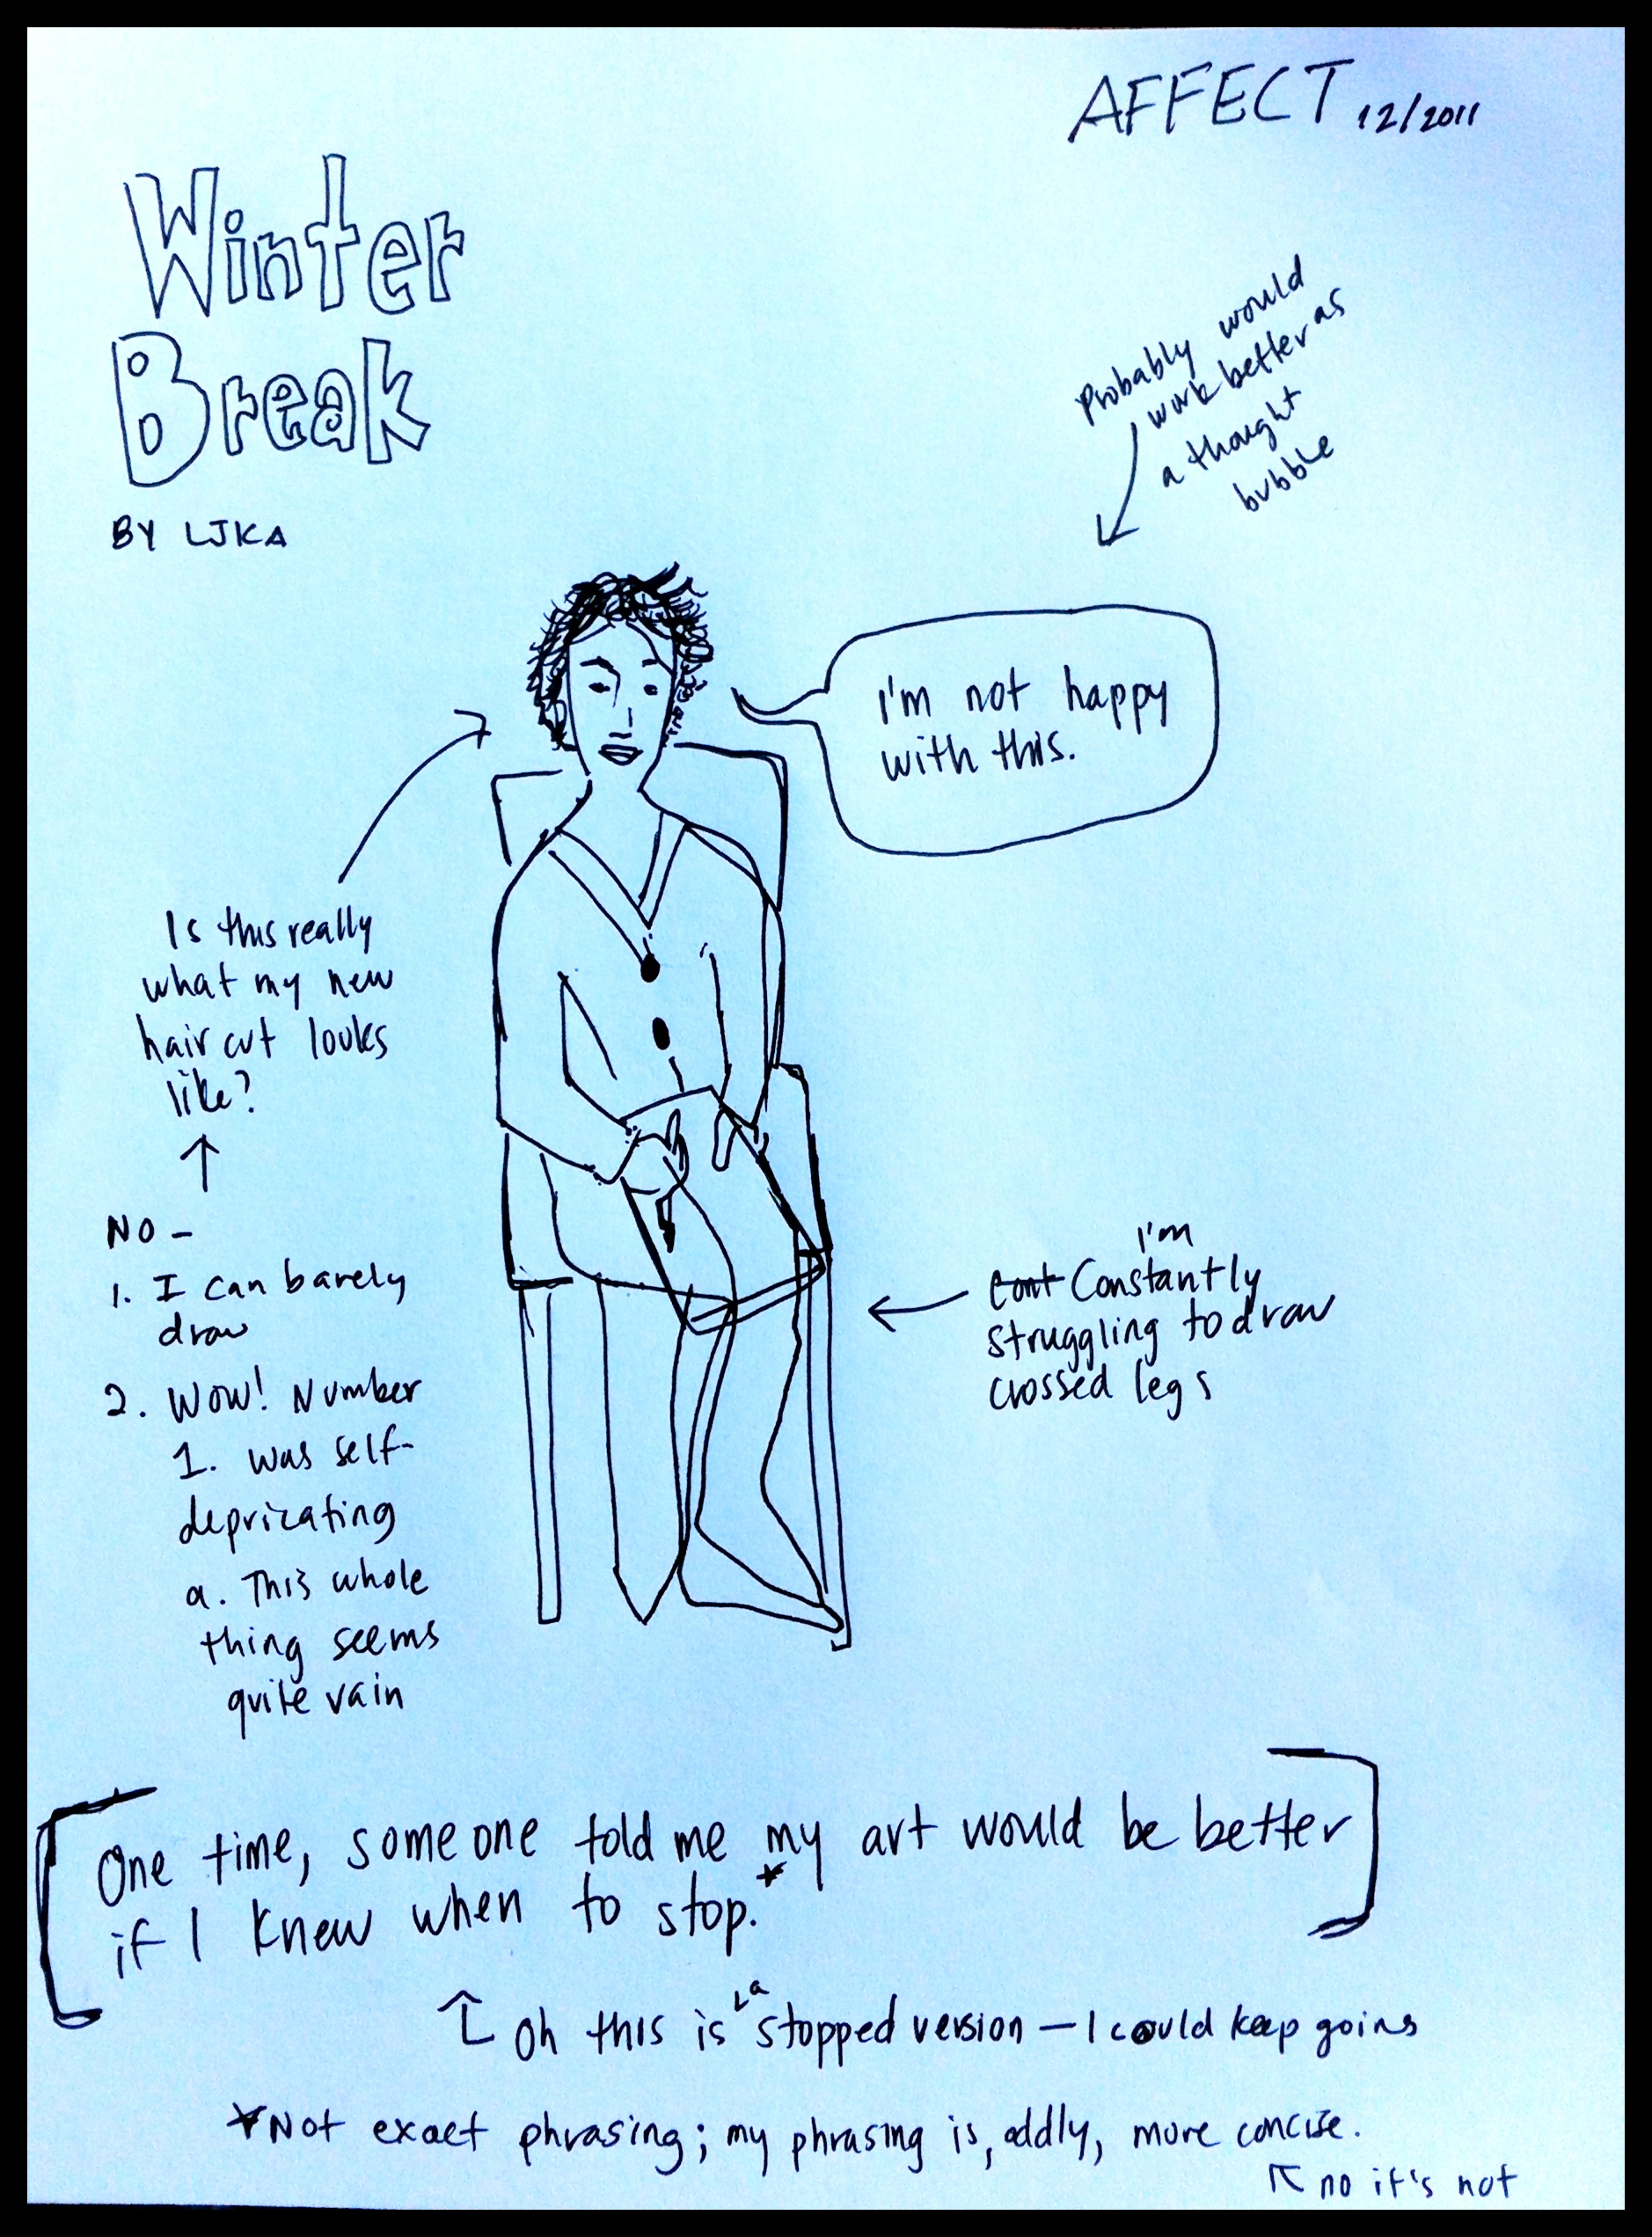 AFFECT 12/2011
Winter
Break
BY LJKA
Probably would
work better as
a thought
bubble
I'm not happy
with this.
Is this really
what my new
hair cut looks
like?
NO -
1. I can barely
draw
2. Wow! Number
1. was self-
depricating
a. This whole
thing seems
quite vain
I'm
Cont Constantly
struggling to draw
crossed legs
One time, someone told me my art would be better
if I knew when to stop.*
Oh this is a stopped version — I could keep going
*Not exact phrasing; my phrasing is, oddly, more concise.
no it's not